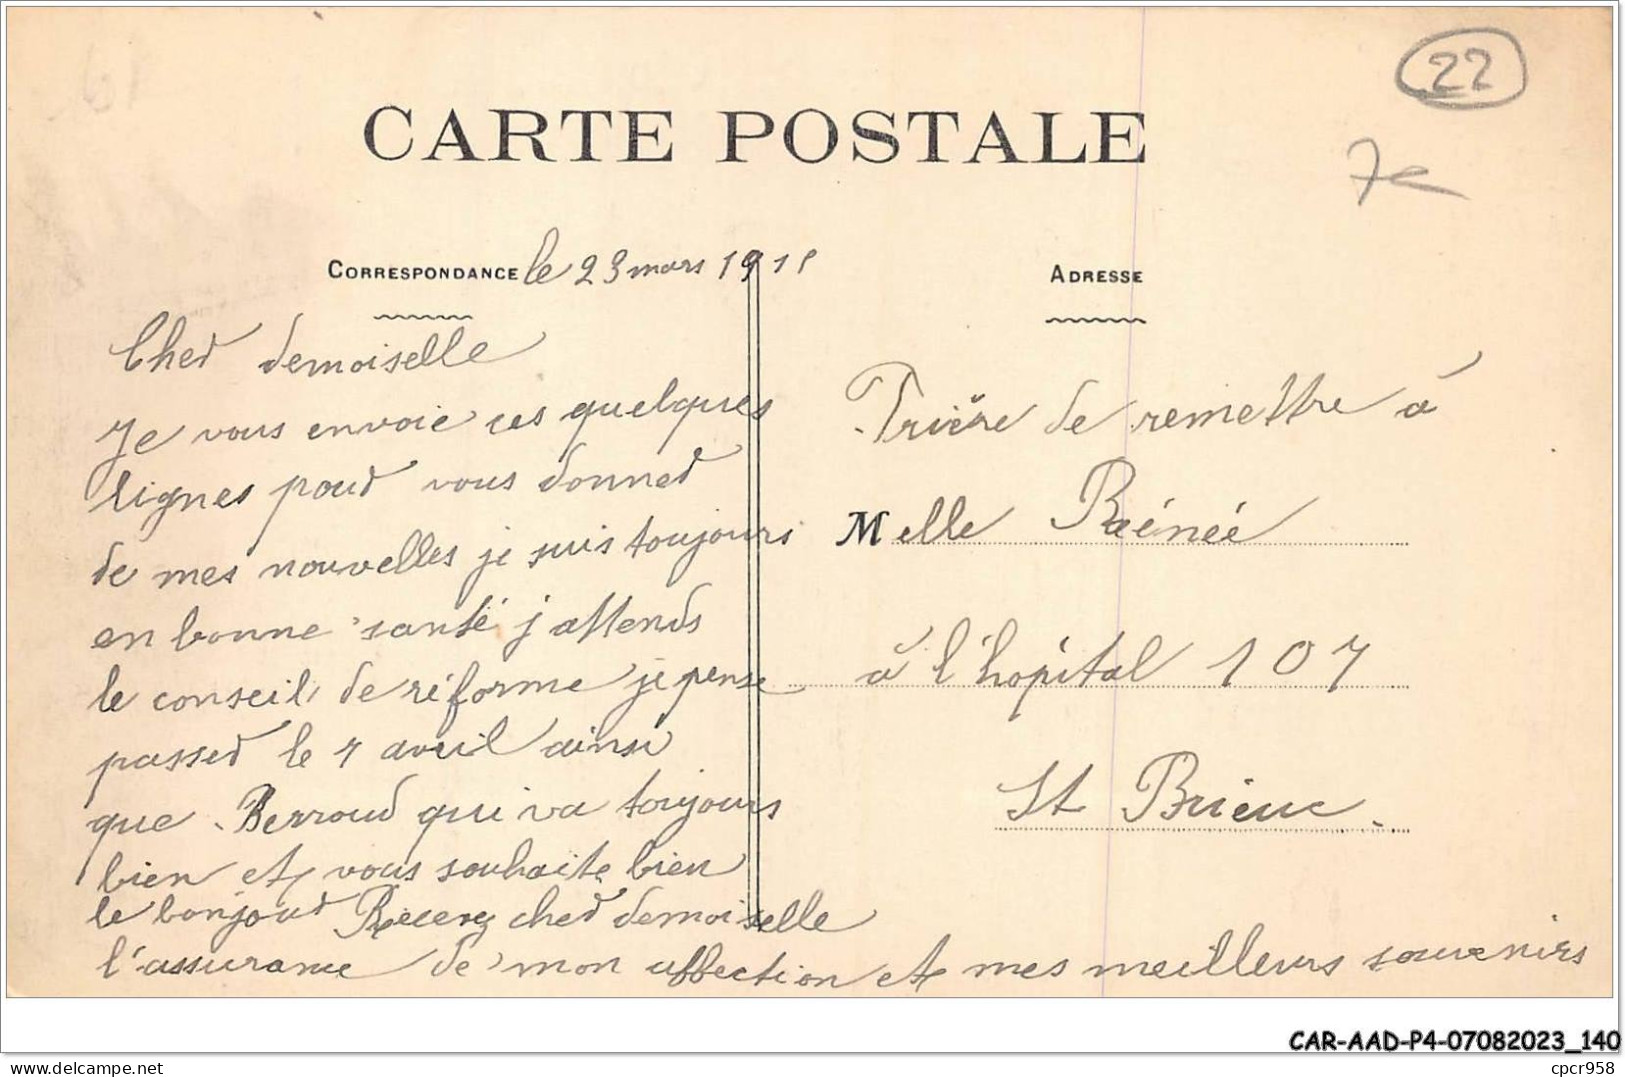 22
7e
CARTE POSTALE
CORRESPONDANCE le 23 mars 191
ADRESSE
Cher demoiselle
Je vous envoie ces quelques
lignes pour vous donner
de mes nouvelles je suis toujours
en bonne santé j attends
le conseil de réforme je pense
passer le 7 avril ainsi
que Berroud qui va toujours
bien et vous souhaite bien
le bonjour Recevez cher demoiselle
l'assurance de mon affection et mes meilleurs souvenirs
Prière de remettre à
Melle Rénée
à l'hopital 107
St Brieuc.
CAR-AAD-P4-07082023_140
www.delcampe.net
cpcr958